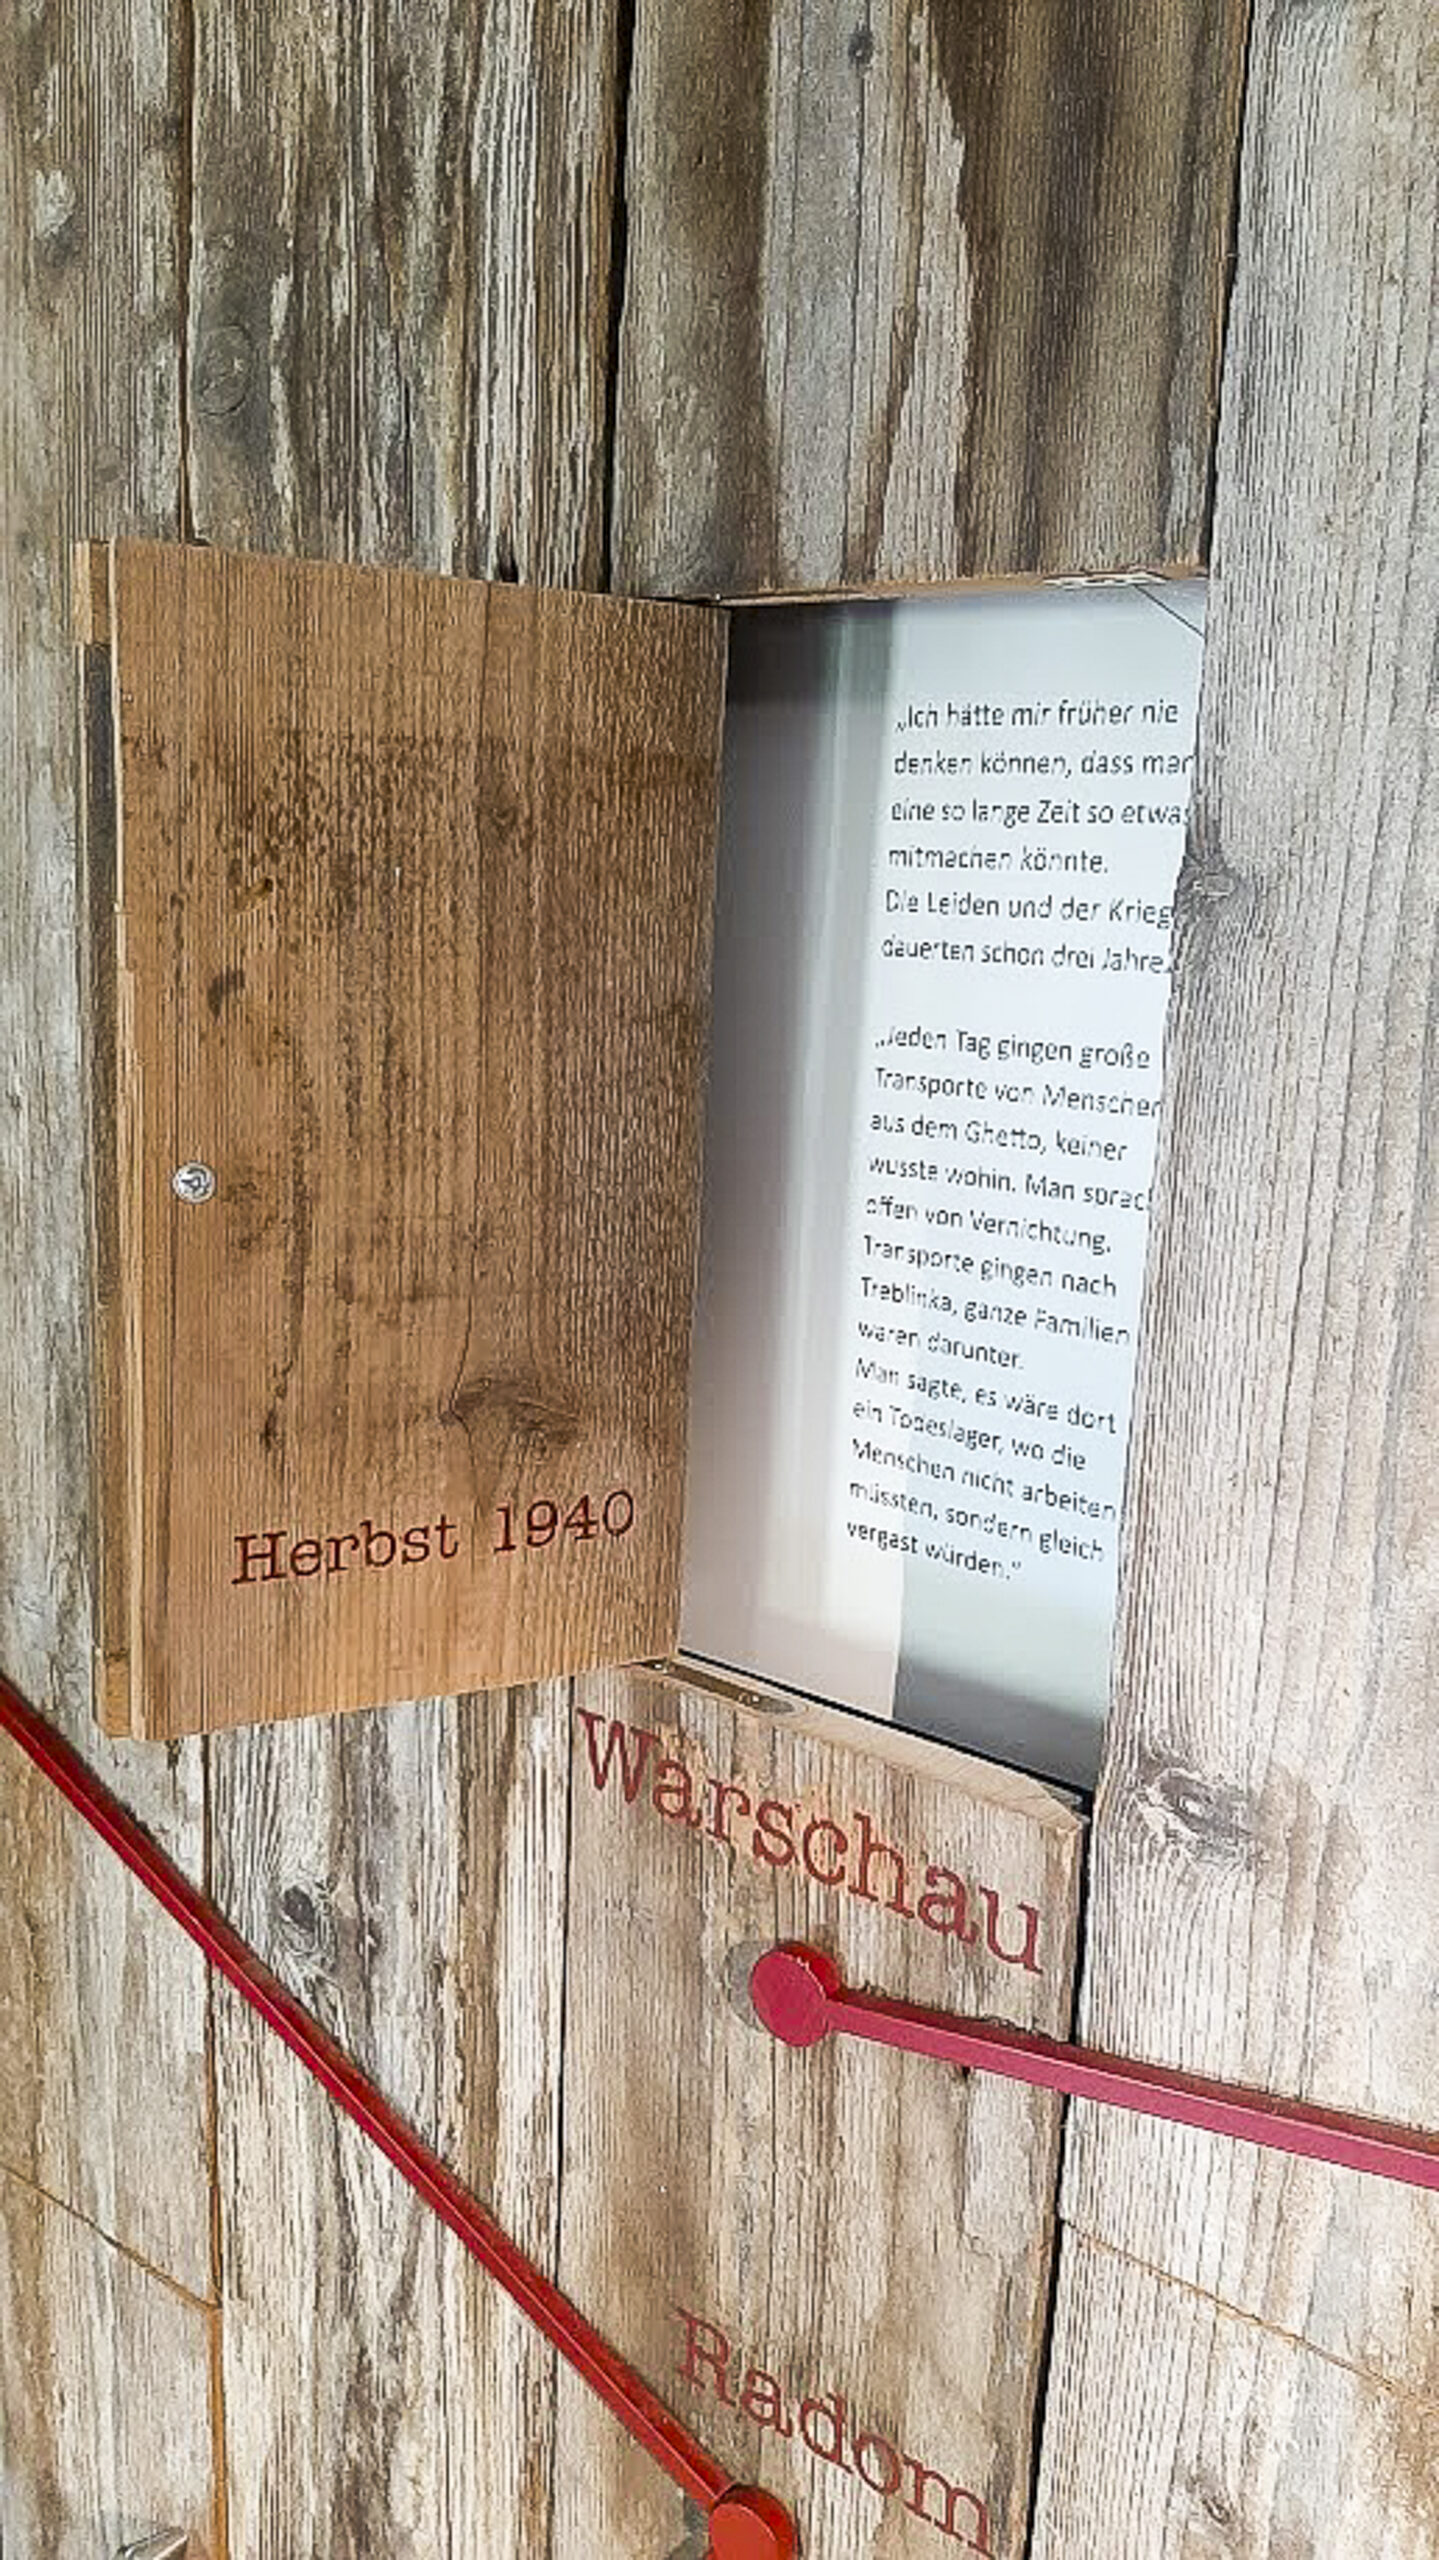 „Ich hätte mir früher nie
denken können, dass man
eine so lange Zeit so etwas
mitmachen könnte.
Die Leiden und der Krieg
dauerten schon drei Jahre.
„Jeden Tag gingen große
Transporte von Menschen
aus dem Ghetto, keiner
wusste wohin. Man sprach
offen von Vernichtung.
Transporte gingen nach
Treblinka, ganze Familien
waren darunter.
Man sagte, es wäre dort
ein Todeslager, wo die
Menschen nicht arbeiten
müssten, sondern gleich
vergast würden.“
Herbst 1940
Warschau
Radom